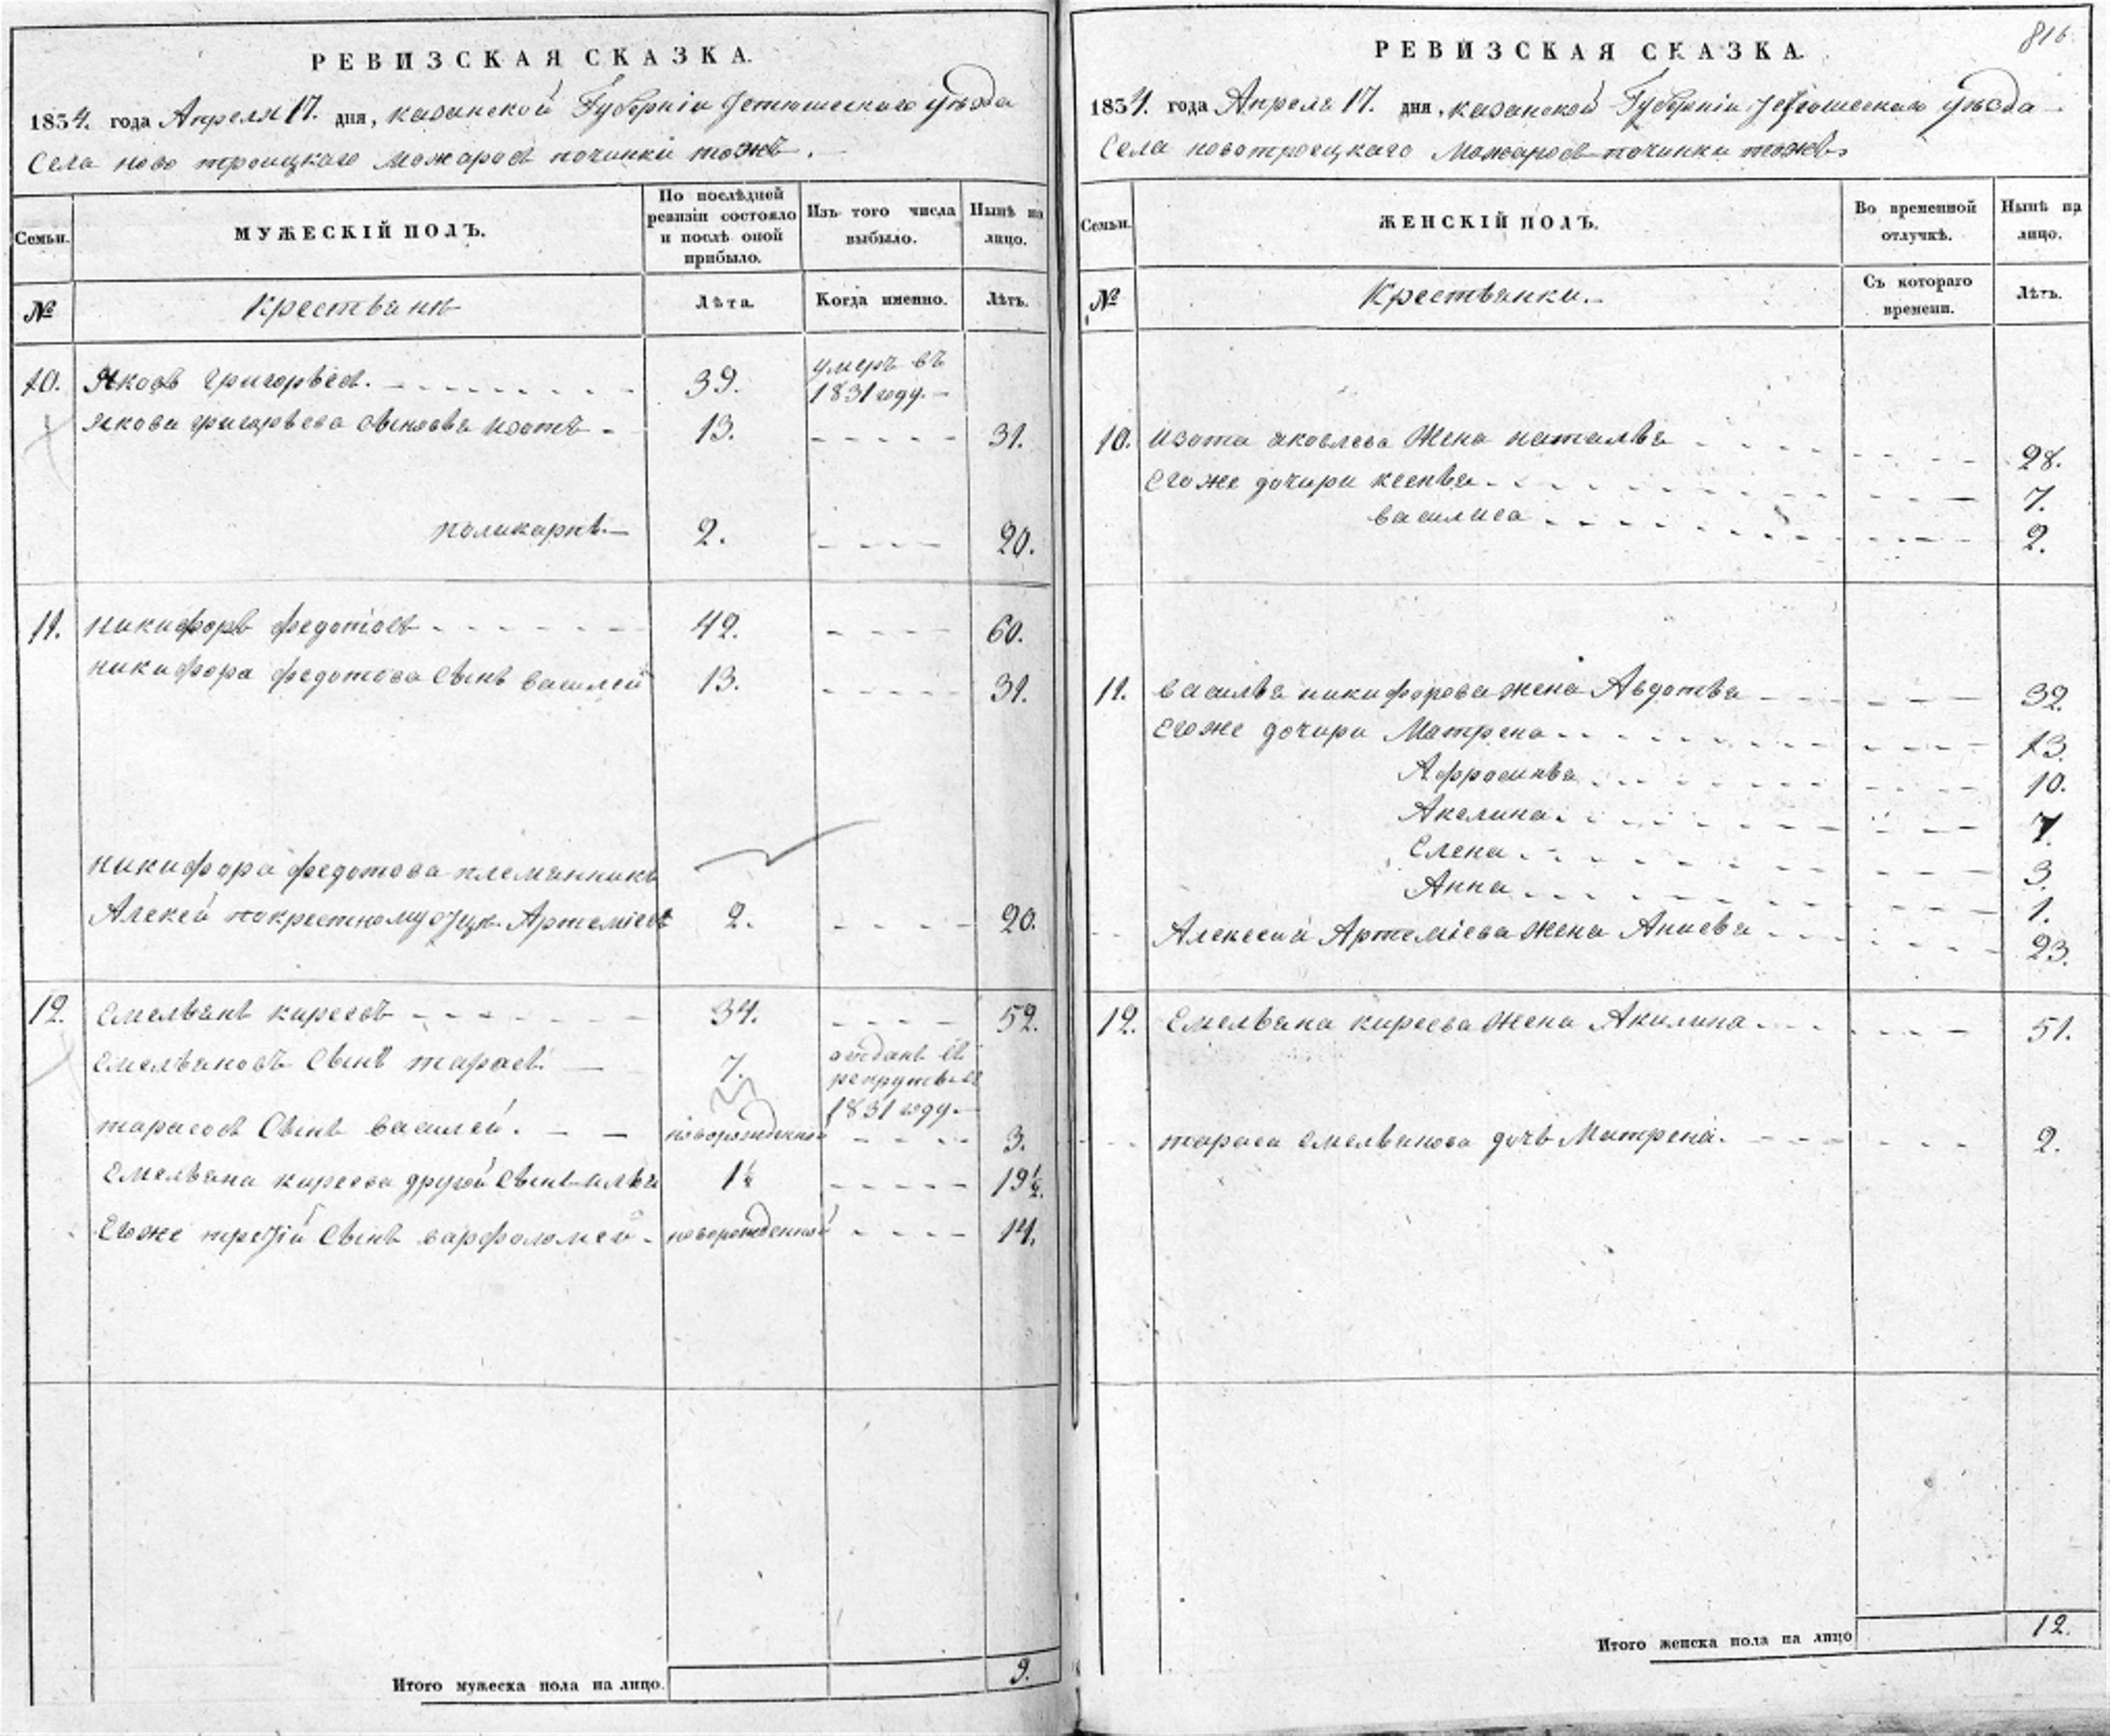 РЕВИЗСКАЯ СКАЗКА.
1834. года Апреля 17. дня, казанской Губерніи Тетюшескаго уѣзда
Села ново троицкаго Можаровъ починки тожъ.
Семьи.
МУЖЕСКІЙ ПОЛЪ.
По послѣдней
ревизіи состояло
и послѣ оной
прибыло.
Изъ того числа
выбыло.
Нынѣ на
лицо.
№
Крестьянъ
Лѣта.
Когда именно.
Лѣтъ.
10. Яковъ Григорьевъ. 39. умеръ въ
1831 году.
Якова григорьева сыновья изотъ 13. 31.
поликарпъ. 2. 20.
11. никифоръ федотовъ 42. 60.
никифора федотова сынъ василей 13. 31.
никифора федотова племянникъ
Алексей покрестному отцу Артемьевъ 2. 20.
12. Емельянъ киреевъ 34. 52.
Емельяновъ сынъ тарасъ. 7. отданъ въ
рекруты въ
1831 году.
тарасовъ сынъ василей. новорожденной 3.
Емельяна киреева другой сынъ илья 1½ 19½.
Егоже третій сынъ варфоломей новорожденной 14.
Итого мужеска пола на лицо. 9.
816.
РЕВИЗСКАЯ СКАЗКА.
1834. года Апреля 17. дня, казанской Губерніи Тетюшескаго уѣзда
Села новотроецкаго Можаровъ починки тожъ
Семьи.
ЖЕНСКІЙ ПОЛЪ.
Во временной
отлучкѣ.
Нынѣ на
лицо.
№
Крестьянки.
Съ котораго
времени.
Лѣтъ.
10. Изота яковлева жена наталья 28.
Егоже дочири ксенья 7.
василиса 2.
11. василья никифорова жена Авдотья 32.
Егоже дочири Матрена 13.
Афросинья 10.
Акелина 7.
Елена 3.
Анна 1.
Алексея Артеміева жена Анисья 23.
12. Емельяна киреева жена Акилина 51.
тараса емельянова дочь Матрена. 2.
Итого женска пола на лицо 12.